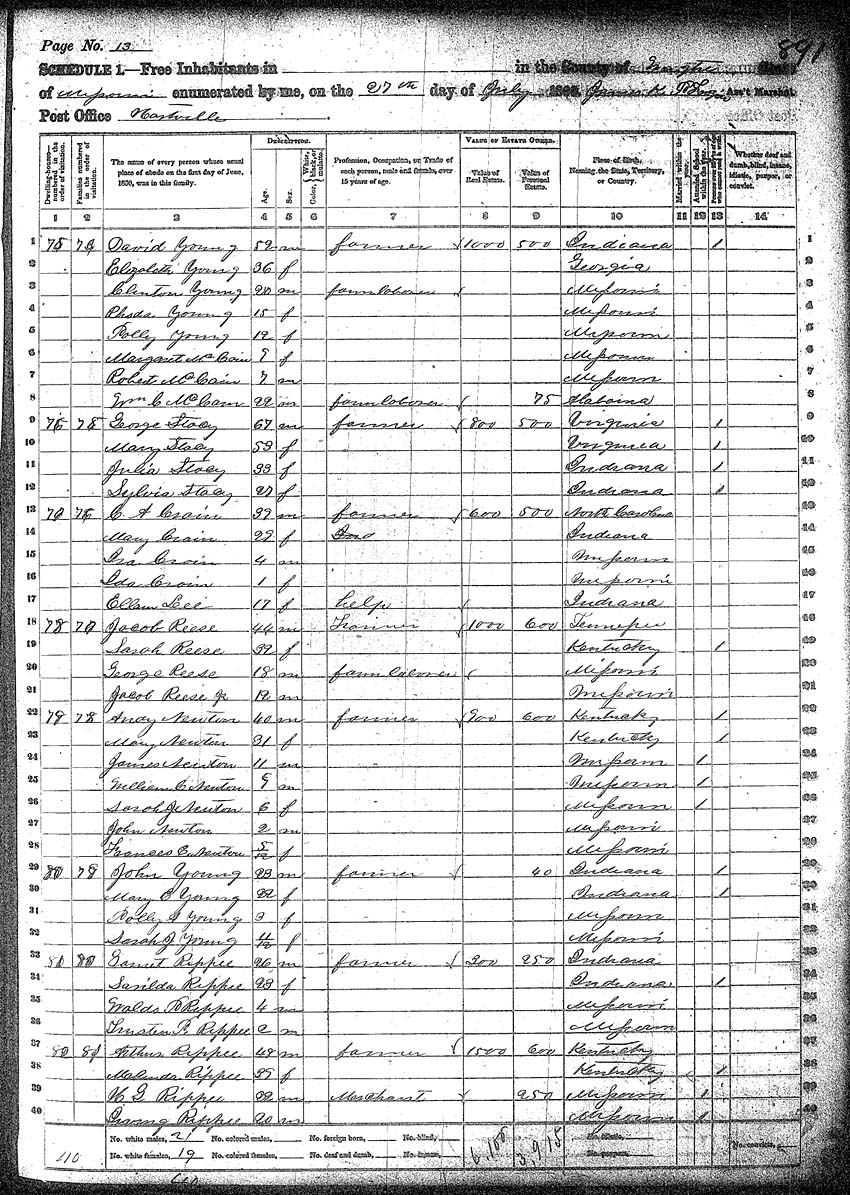 Page No. 13
891
SCHEDULE 1.—Free Inhabitants in in the County of
of Missouri enumerated by me, on the 27th day of July Ass't Marshal
Post Office
Description. Value of Estate Owned.
Dwelling-houses—numbered in the order of visitation. Families numbered in the order of visitation. The name of every person whose usual place of abode on the first day of June, 1860, was in this family. Age. Sex. Color, White, black, or mulatto. Profession, Occupation, or Trade of each person, male and female, over 15 years of age. Value of Real Estate. Value of Personal Estate. Place of Birth, Naming the State, Territory, or Country. Married within the year. Attended School within the year. Whether deaf and dumb, blind, insane, idiotic, pauper, or convict.
1 2 3 4 5 6 7 8 9 10 11 12 13 14
1 75 David Young 52 m farmer 1000 500 Indiana 1 1
2 Elizabeth Young 36 f Georgia 2
3 Clinton Young 20 m farm laborer Missouri 3
4 Rhoda Young 15 f Missouri 4
5 Polly Young 12 f Missouri 5
6 Margaret McCain 9 f Missouri 6
7 Robert McCain 7 m Missouri 7
8 Wm C McCain 22 m farm laborer 75 Alabama 8
9 76 75 George Stacy 67 m farmer 800 500 Virginia 1 9
10 Mary Stacy 53 f Virginia 1 10
11 Julia Stacy 33 f Indiana 1 11
12 Sylvia Stacy 27 f Indiana 1 12
13 76 C A Crain 39 m farmer 600 500 North Carolina 13
14 Mary Crain 29 f Indiana 14
15 Ira Crain 4 m Missouri 15
16 Ida Crain 1 f Missouri 16
17 Ellen Lee 17 f help Indiana 17
18 78 Jacob Reese 44 m Farmer 1000 600 Tennessee 18
19 Sarah Reese 39 f Kentucky 1 19
20 George Reese 18 m farm laborer Missouri 20
21 Jacob Reese Jr 12 m Missouri 21
22 79 78 Andy Newton 40 m farmer 900 600 Kentucky 1 22
23 Mary Newton 31 f Kentucky 1 23
24 James Newton 11 m Missouri 1 24
25 William C Newton 9 m Missouri 1 25
26 Sarah J Newton 6 f Missouri 1 26
27 John Newton 2 m Missouri 27
28 Frances E Newton 5/12 f Missouri 28
29 80 79 John Young 23 m farmer 40 Indiana 1 29
30 Mary E Young 22 f Indiana 1 30
31 Polly S Young 3 f Missouri 31
32 Sarah J Young 4/12 f Missouri 32
33 81 80 Garret Rippee 26 m farmer 300 250 Indiana 33
34 Sarilda Rippee 23 f Indiana 1 34
35 Rippee 4 m Missouri 35
36 Rippee 2 m Missouri 36
37 82 81 Arthur Rippee 48 m farmer 1500 600 Kentucky 37
38 Malinda Rippee 39 f Kentucky 1 38
39 Rippee 22 m Merchant 250 Missouri 1 39
40 Rippee 20 m Missouri 1 40
No. white males, 21 No. colored males, No. foreign born, No. blind, No. idiotic,
40 No. white females, 19 No. colored females, No. deaf and dumb, No. insane, 6,100 3,915 No. paupers, No. convicts,